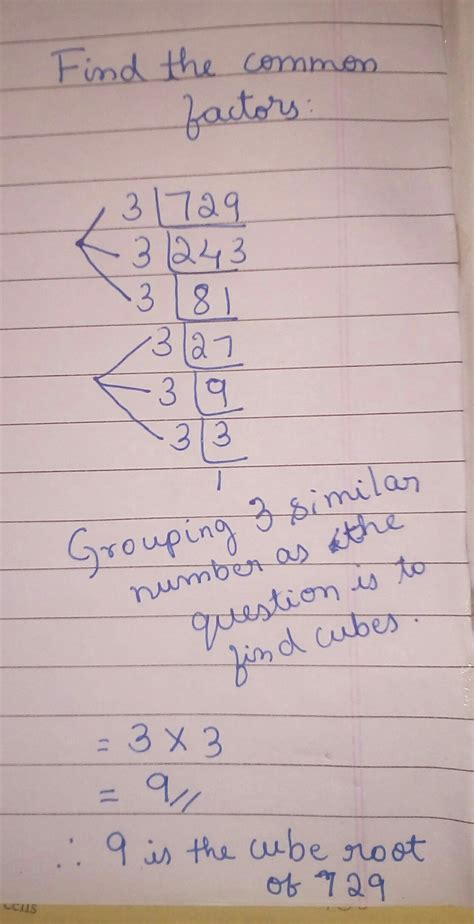 Find the common
factors:
3 729
3 243
3 81
3 27
3 9
3 3
1
Grouping 3 similar
number as the
question is to
find cubes.
= 3 × 3
= 9//
∴ 9 is the cube root
of 729